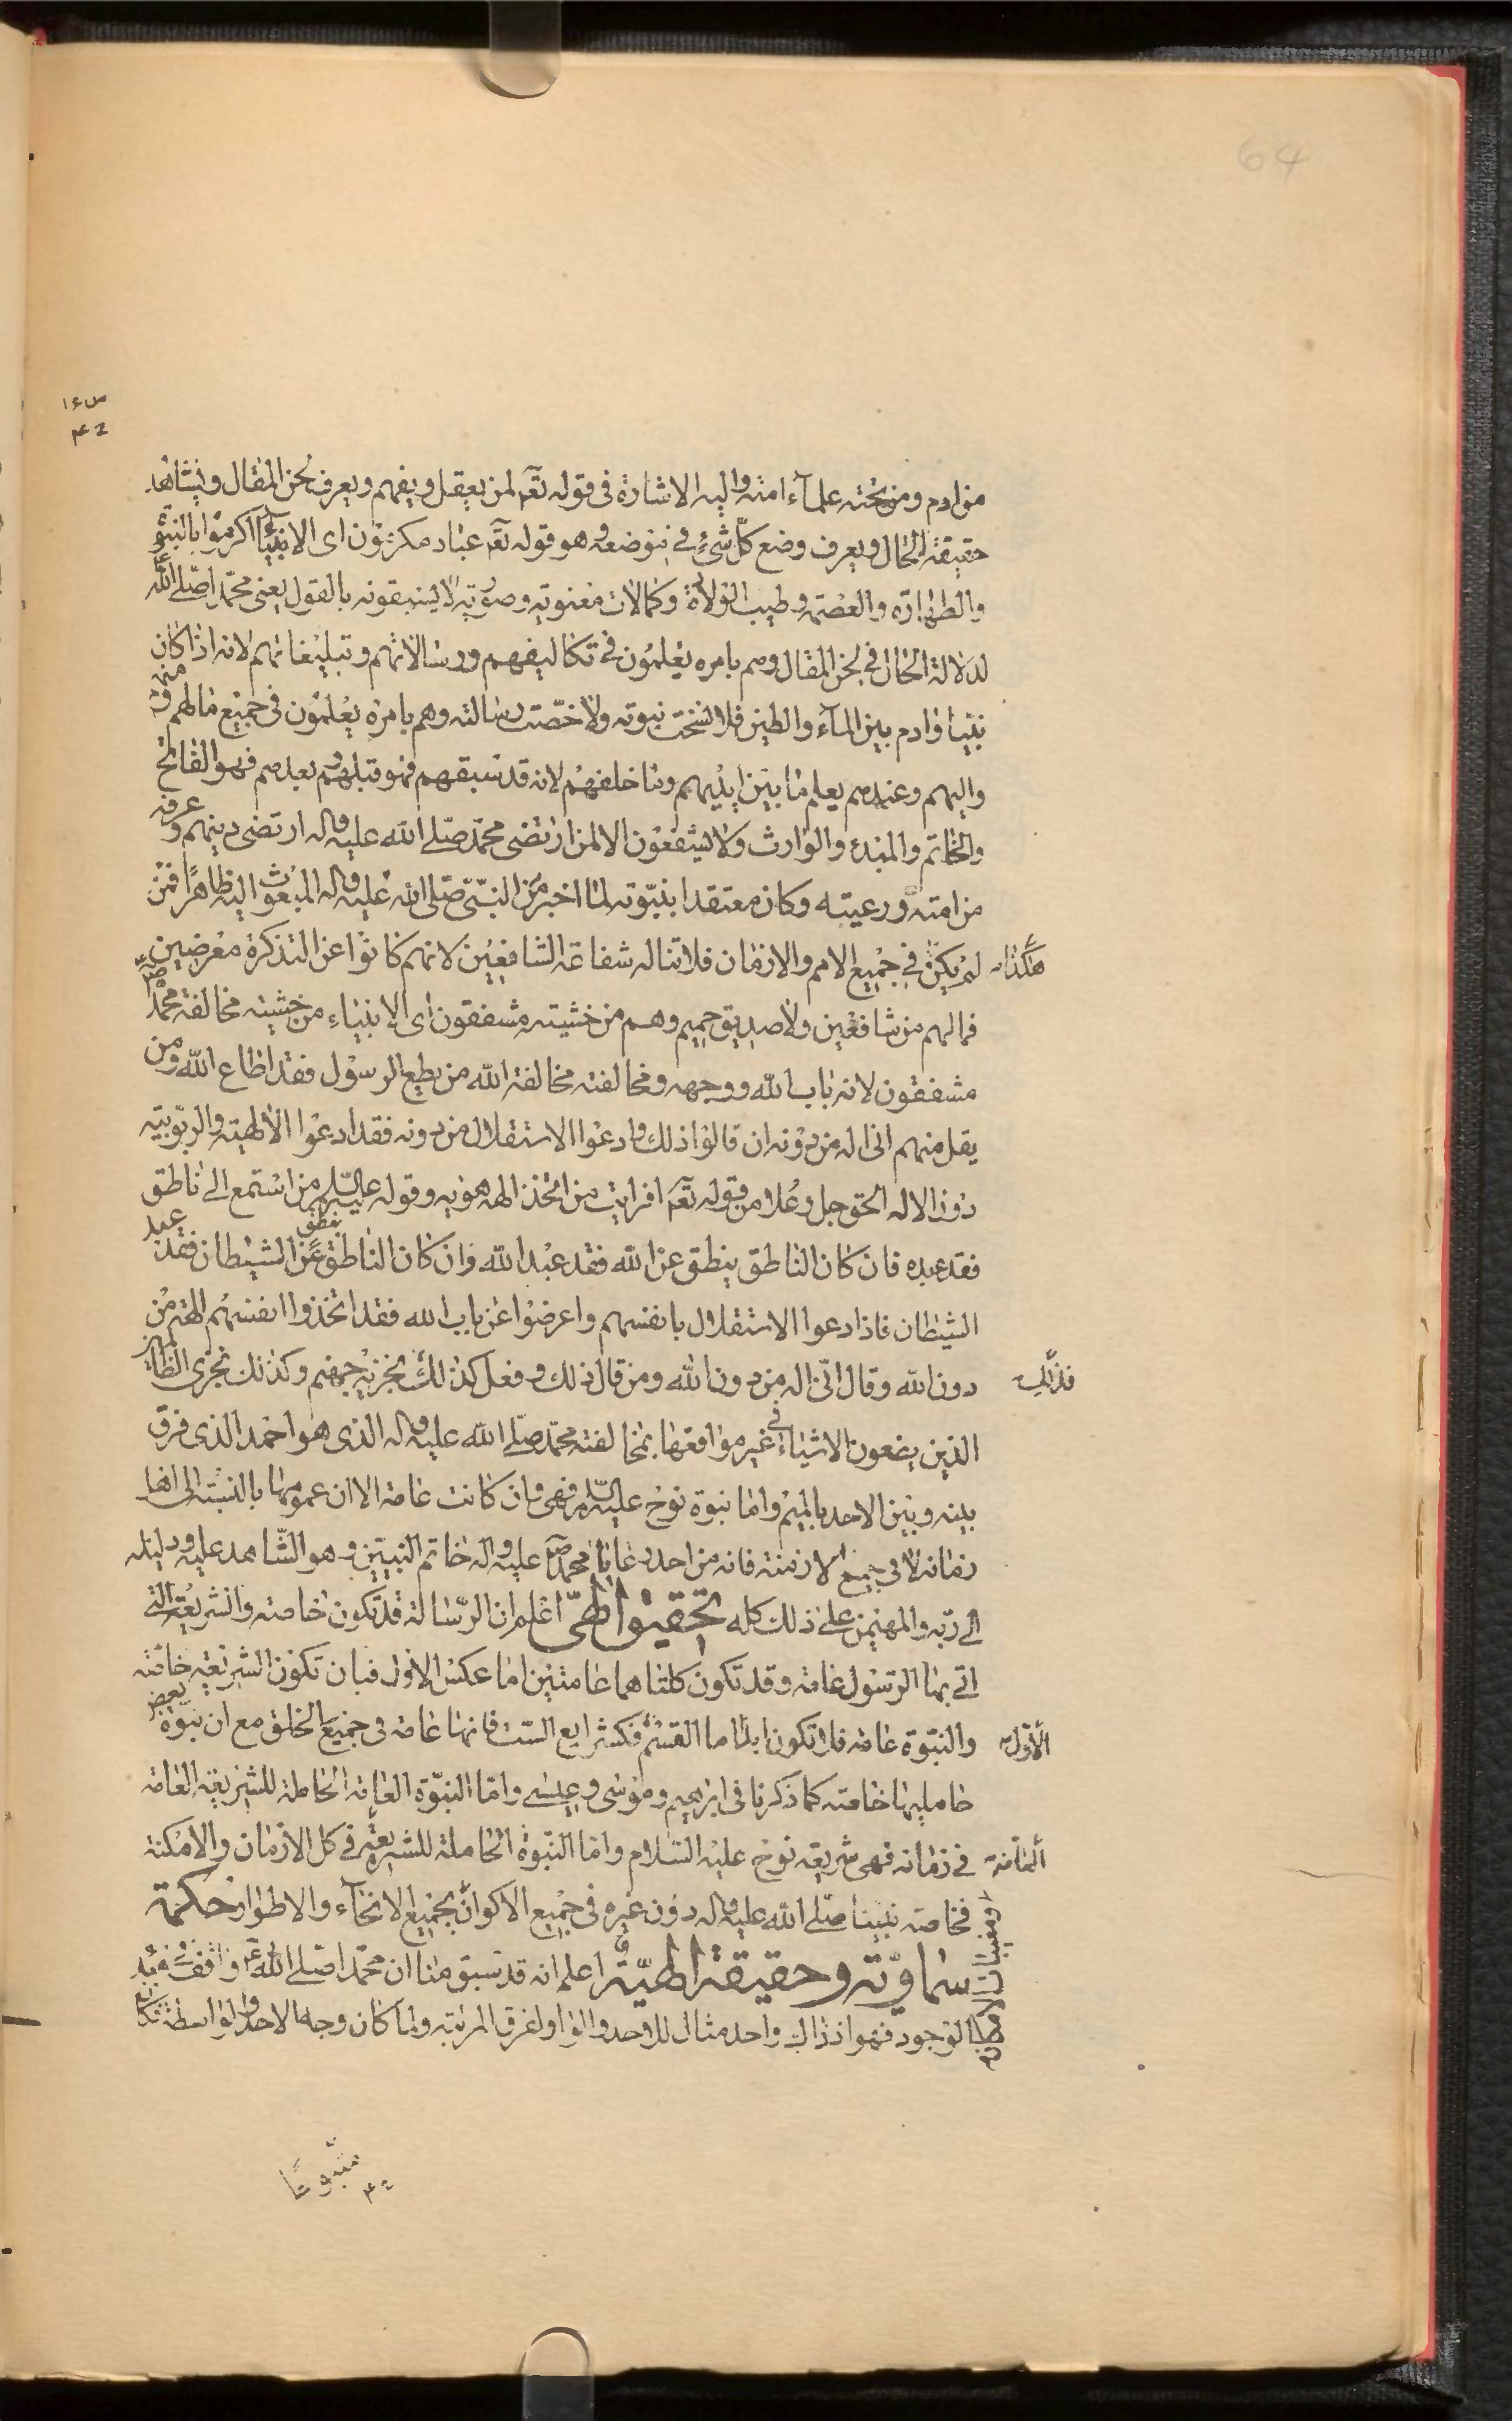 64
من ادم ومن تحته علمآء امته واليه الاشارة فى قوله تعۤ لمن يعقل ويفهم ويعرف لحن المقال ويشاهد
حقيقة الحال ويعرف وضع كلّ شىء فى موضعه وهو قوله تعۤ عباد مكرمون اى الانبيآء اكرموا بالنبوّة
والطهارة والعصمة وطيب الولادة وكمالات معنوية وصورية لا يسبقونه بالقول يعنى محمّدا صلّى الله عليه
لدلالة الحال فى لحن المقال وهم بامره يعلمون فى تكاليفهم ورسالاتهم وتبليغاتهم لانه اذا كان
نبيا وادم بين المآء والطين فلا نسخت نبوته ولا خصّت رسالته وهم بامره يعلمون فى جميع مالهم ومنهم
واليهم وعندهم يعلم ما بين ايديهم وما خلفهم لانه قد سبقهم فهو قبلهم وبعدهم فهو الفاتح
والخاتم والمبدء والوارث ولا يشفعون الا لمن ارتضى محمّد صلّى الله عليه واله ارتضى دينهم وعرفه
من امته ورعيته وكان معتقدا بنبوّته لما اخبر عن النبىّ صلّى الله عليه واله المبعوث اليه ظاهرا فمن
لم يكن هكذا فى جميع الامم والازمان فلا تناله شفاعة الشافعين لانهم كانوا عن التذكرة معرضين
فمالهم من شافعين ولا صديق حميم وهم من خشيته مشفقون اى الانبياء من خشية مخالفة محمّد صۤ
مشفقون لانه باب الله ووجهه ومخالفته مخالفة الله من يطع الرسول فقد اطاع الله ومن
يقل منهم انى اله من دونه ان قالوا ذلك وادعوا الاستقلال من دونه فقد ادعوا الالهية والربوبية
دون الاله الحق جل وعلا من قوله تعۤ افرايت من اتخذ الهه هويه وقوله عليه السّلم من استمع الى ناطق
فقد عبده فان كان الناطق ينطق عن الله فقد عبد الله وان كان الناطق ينطق عن الشيطان فقد عبد
الشيطان فاذا دعوا الاستقلال بانفسهم واعرضوا عن باب الله فقد اتخذوا انفسهم الهة من
دون الله وقال انّى اله من دون الله ومن قال ذلك وفعل كذلك فذلك نجزيه جهنم وكذلك نجزى الظالمين
الذين يضعون الاشياء فى غير مواقعها بمخالفته محمّد صلّى الله عليه واله الذى هو احمد الذى فرق
بينه وبين الاحد بالميم واما نبوة نوح عليه السّلم فهى وان كانت عامة الا ان عمومها بالنسبة الى اهل
زمانه لا فى جميع الازمنة فانه من احد رعايا محمّد صۤ عليه واله خاتم النبيّين وهو الشّاهد عليه ودليله
الى ربّه والمهيمن على ذلك كله تحقيق الهىّ اعلم ان الرّسالة قد تكون خاصة والشريعة التى
اتى بها الرّسول عامة وقد تكون كلتاهما عامتين اما عكس الاول فبان تكون الشريعة خاصة
والنبوّة عامة فلا تكون ابدا اما القسم الاوّل فكشرايع الستّ فانها عامة فى جميع الخلق مع ان نبوّة بعض
حامليها خاصة كما ذكرنا فى ابرهيم وموسى وعيسى واما النبوّة العامة الحاملة للشريعة العامة
فى زمانه فهى شريعة نوح عليه السّلام واما النبّوة العامّة الحاملة للشريعة فى كل الازمان والامكنة
فخاصة نبينا صلّى الله عليه واله دون غيره فى جميع الاكوان بجميع الانحآء والاطوار حكمة
سماويّة وحقيقة الهيّة اعلم انه قد سبق منا ان محمّدا صلّى الله عۤ واقف فى مبدء
الوجود فهو اذ ذاك واحد مثال للاوحد والواو لغرق المرتبة ولما كان وجها لاحد والواسطة